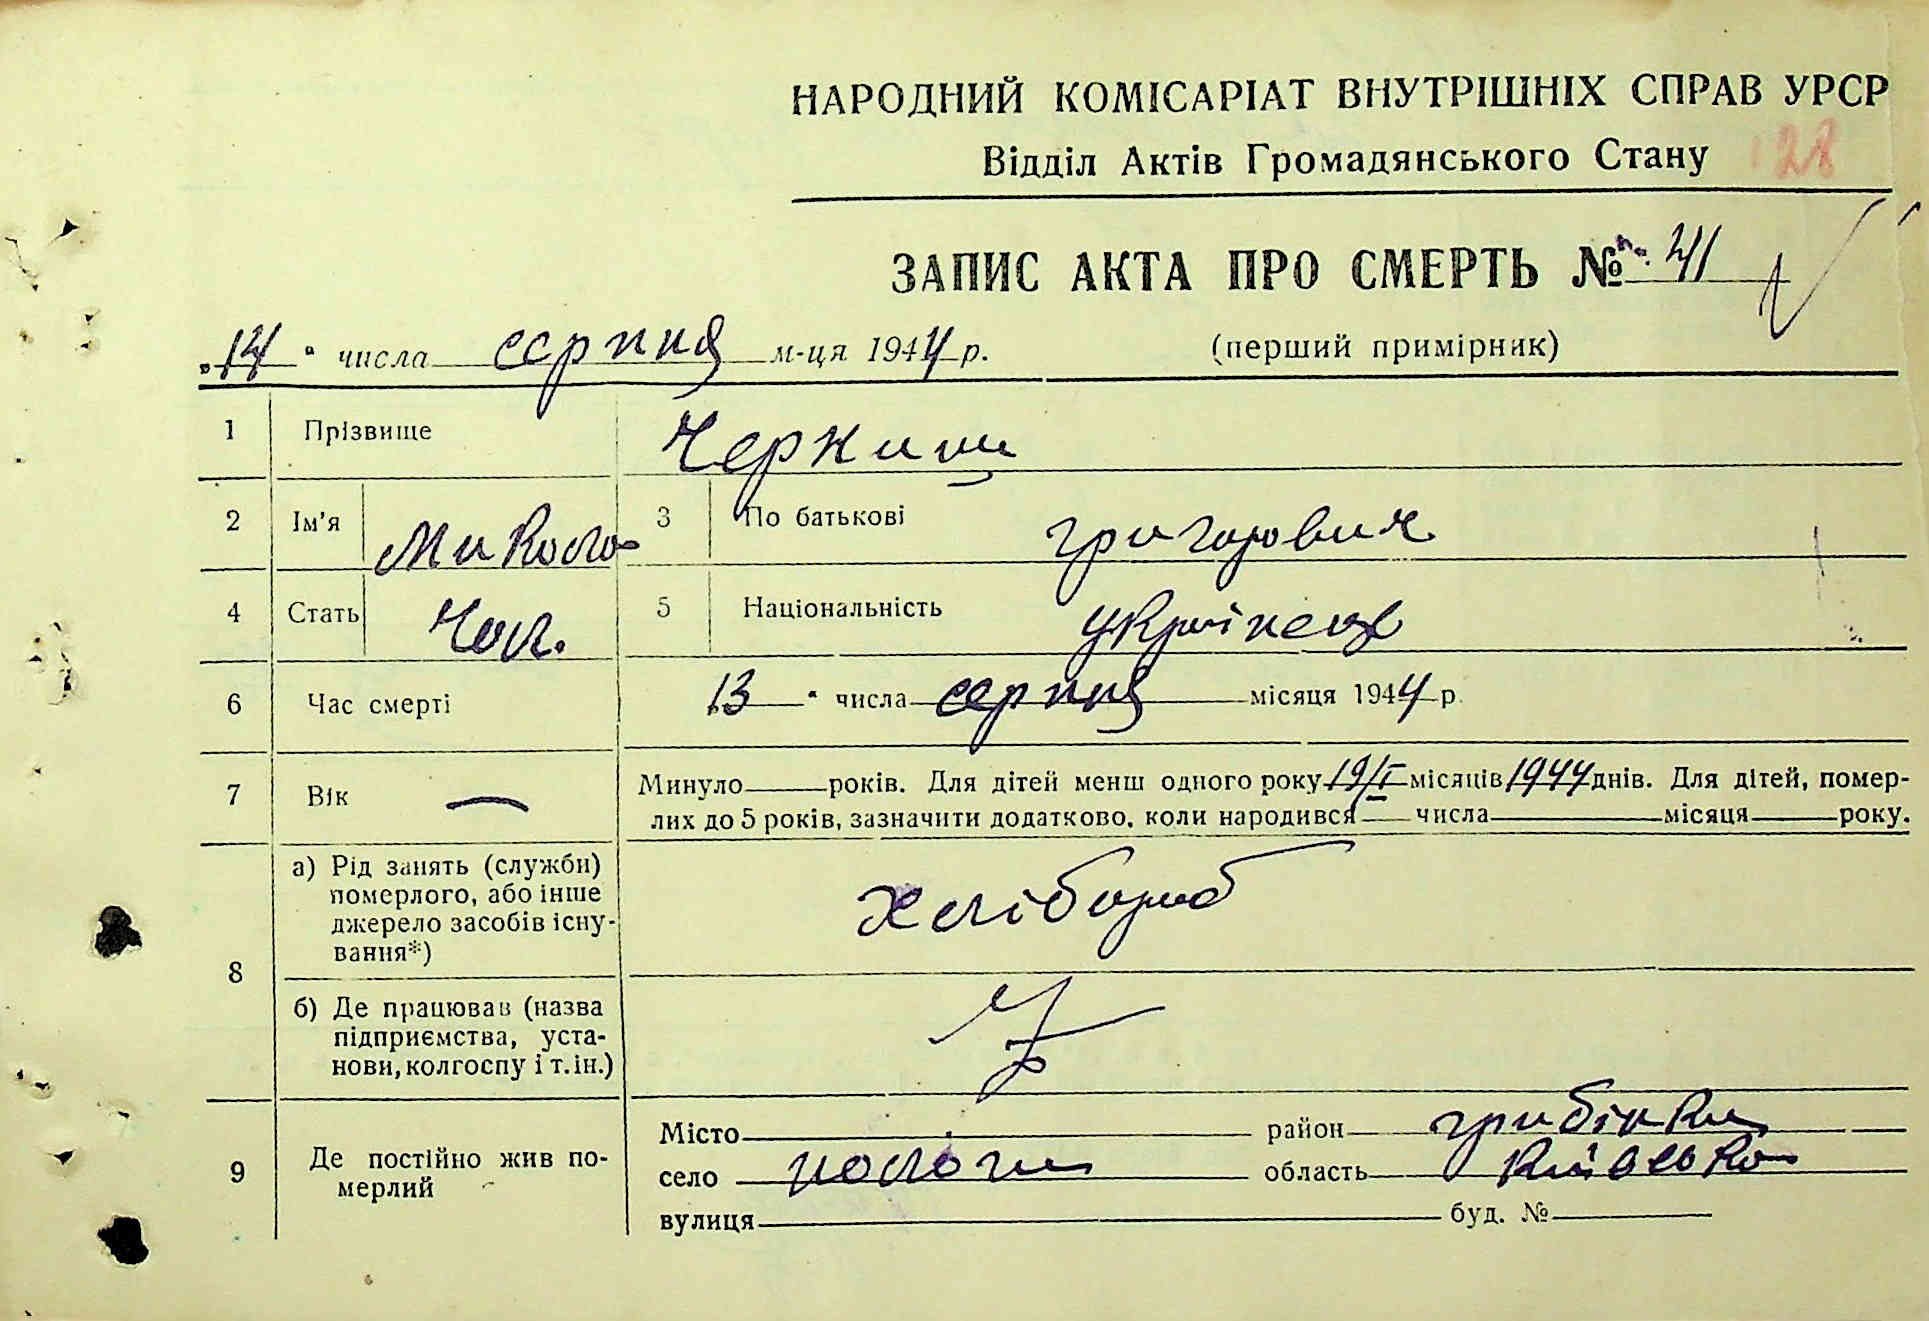 НАРОДНИЙ КОМІСАРІАТ ВНУТРІШНІХ СПРАВ УРСР
Відділ Актів Громадянського Стану 128
ЗАПИС АКТА ПРО СМЕРТЬ № 41
„14" числа серпня м-ця 1944 р. (перший примірник)
1 Прізвище Черниш
2 Ім'я Микола 3 По батькові григорович
4 Стать Чол. 5 Національність українець
6 Час смерті 13 " числа серпня місяця 1944 р.
7 Вік — Минуло років. Для дітей менш одного року 19/I місяців 1944 днів. Для дітей, помер-
лих до 5 років, зазначити додатково, коли народився числа місяця року.
8 а) Рід занять (служби) померлого, або інше джерело засобів існу- вання*) хлібороб
б) Де працював (назва підприємства, уста- нови, колгоспу і т.ін.)
9 Де постійно жив по- мерлий
Місто район грибінки
село пологи область київсько
вулиця буд. №